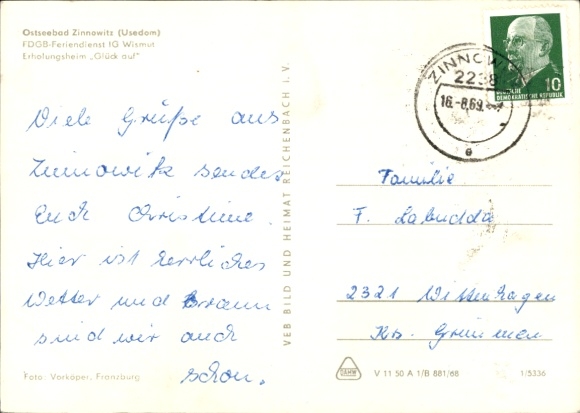 Ostseebad Zinnowitz (Usedom)
FDGB-Feriendienst IG Wismut
Erholungsheim „Glück auf“
Viele Grüße aus
Zinnowitz sendet
Euch Christine.
Hier ist herrliches
Wetter und Braun
sind wir auch
schon.
Foto: Vorköper, Franzburg
VEB BILD UND HEIMAT REICHENBACH i. V.
ZINNOWITZ
2238
16.-8.69.
a
10
DEUTSCHE
DEMOKRATISCHE REPUBLIK
Familie
F. Labudda
2321 Wittenhagen
Krs. Grimmen
V 11 50 A 1/B 881/68
1/5336